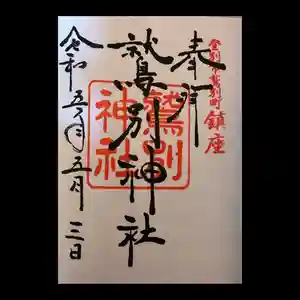 登別市鷲別町鎮座
奉拝
鷲別神社
鷲別神社
令和五年五月三日